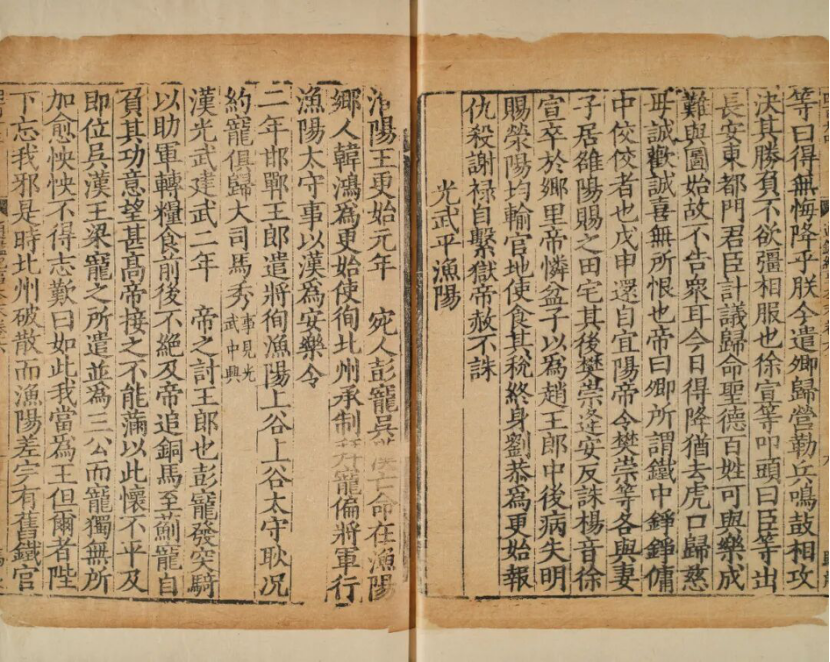 等曰得無悔降乎朕今遣卿歸營勒兵鳴鼓相攻
決其勝負不欲彊相服也徐宣等叩頭曰臣等出
長安東都門君臣計議歸命聖德百姓可與樂成
難與圖始故不告衆耳今日得降猶去虎口歸慈
母誠歡誠喜無所恨也帝曰卿所謂鐵中錚錚傭
中佼佼者也戊申還自宜陽帝令樊崇等各與妻
子居雒陽賜之田宅其後樊崇逢安反誅楊音徐
宣卒於鄉里帝憐盆子以為趙王郎中後病失明
賜滎陽均輸官地使食其稅終身劉恭為更始報
仇殺謝祿自繫獄帝赦不誅
光武平漁陽
淮陽王更始元年 宛人彭寵吳漢亡命在漁陽
鄉人韓鴻為更始使徇北州承制拜寵偏將軍行
漁陽太守事以漢為安樂令
二年邯鄲王郎遣將徇漁陽上谷上谷太守耿况
約寵俱歸大司馬秀事見光武中興
漢光武建武二年 帝之討王郎也彭寵發突騎
以助軍轉糧食前後不絕及帝追銅馬至薊寵自
負其功意望甚高帝接之不能滿以此懷不平及
即位吳漢王梁寵之所遣並為三公而寵獨無所
加愈怏怏不得志歎曰如此我當為王但爾者陛
下忘我邪是時北州破散而漁陽差完有舊鐵官